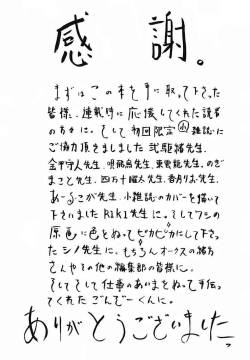 感謝。
まずはこの本を手に取って下さった
皆様、連載時に応援してくれた読者
の方々に。そして初回限定小雑誌に
ご協力頂きました弐駆緒先生、
金平守人先生、明飛鳥先生、東雲龍先生、のぎ
まこと先生、四万十曜太先生、香月りお先生、
あーるこが先生、小雑誌のカバーを描いて
下さいましたRiki先生に。そしてワシの
原画に色をぬってピカピカにして下さっ
たシノ先生に。もちろんオークスの緒方
さんやその他の編集部の皆様に。
そしてそして仕事のあいまをぬって手伝っ
てくれたごんでーくんに。
ありがとうございました